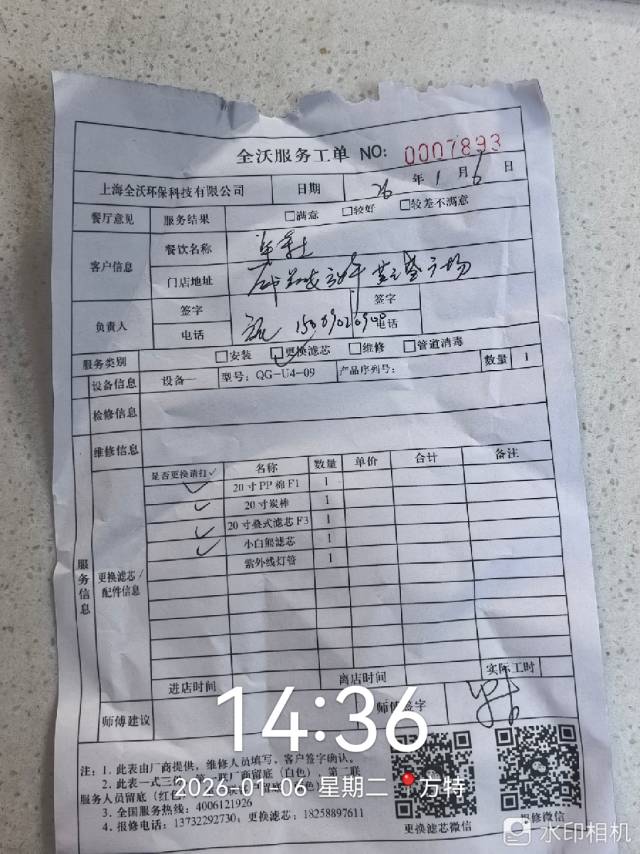 全沃服务工单 NO: 0007893
上海全沃环保科技有限公司 日期 26 年 1 月 6 日
餐厅意见 服务结果 □满意 □较好 □较差不满意
客户信息 餐饮名称
门店地址 广场
负责人 签字 签字
电话 电话
服务类别 □安装 □更换滤芯 □维修 □管道消毒
设备信息 设备一 型号: QG-U4-09 产品序列号: 数量 1
检修信息
维修信息
服务信息
更换滤芯/配件信息
是否更换请打✓ 名称 数量 单价 合计 备注
✓ 20寸PP棉F1 1
✓ 20寸炭棒 1
✓ 20寸叠式滤芯F3 1
✓ 小白熊滤芯 1
紫外线灯管 1
进店时间 离店时间 实际工时
师傅建议 师傅签字
注: 1. 此表由厂商提供, 维修人员填写, 客户签字确认。
2. 此表一式三 第一联厂商留底(白色), 第二联
服务人员留底(红
3. 全国服务热线: 4006121926
4. 报修电话: 13732292730, 更换滤芯: 18258897611
更换滤芯微信 报修微信
14:36
2026.01.06 星期二 方特
水印相机